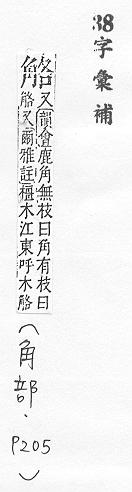 38字彙補
又韻會鹿角無枝曰角有枝曰
觡又爾雅註木江東呼木觡
(角部.P205)